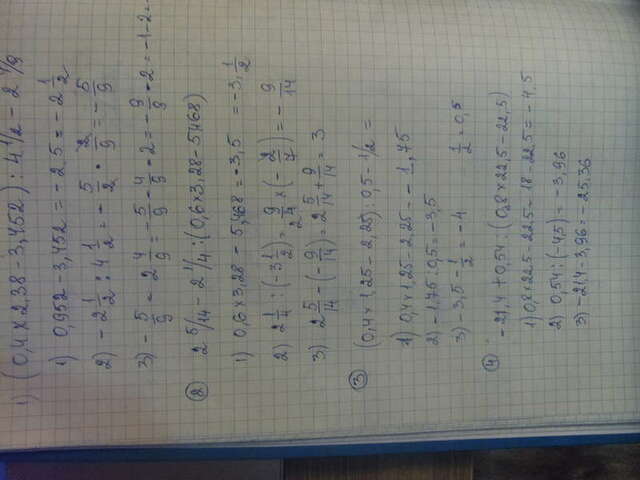 1) (0,4 x 2,38 - 3,452) : 4 1/2 - 2 4/9
1) 0,952 - 3,452 = - 2.5 = - 2 1/2
2) - 2 1/2 : 4 1/2 = - 5/2 · 2/9 = - 5/9
3) - 5/9 - 2 4/9 = - 5/9 - 4/9 - 2 = - 9/9 - 2 = - 1 - 2 =
② 2 5/14 - 2 1/4 : (0,6 x 3,28 - 5,468)
1) 0,6 x 3,28 - 5,468 = - 3,5 = - 3 1/2
2) 2 1/4 : (- 3 1/2) = 9/4 x (- 2/7) = - 9/14
3) 2 5/14 - (- 9/14) = 2 5/14 + 9/14 = 3
③ (0,4 x 1,25 - 2,25) : 0,5 - 1/2 =
1) 0,4 x 1,25 - 2,25 = - 1,75
2) - 1,75 : 0,5 = - 3,5
3) - 3,5 - 1/2 = - 4 1/2 = 0,5
④ - 21,4 + 0,54 : (0,8 x 22,5 - 22,5)
1) 0,8 x 22.5 - 22.5 = 18 - 22.5 = - 4,5
2) 0,54 : (- 4,5) = - 3,96
3) - 21,4 - 3,96 = - 25,36